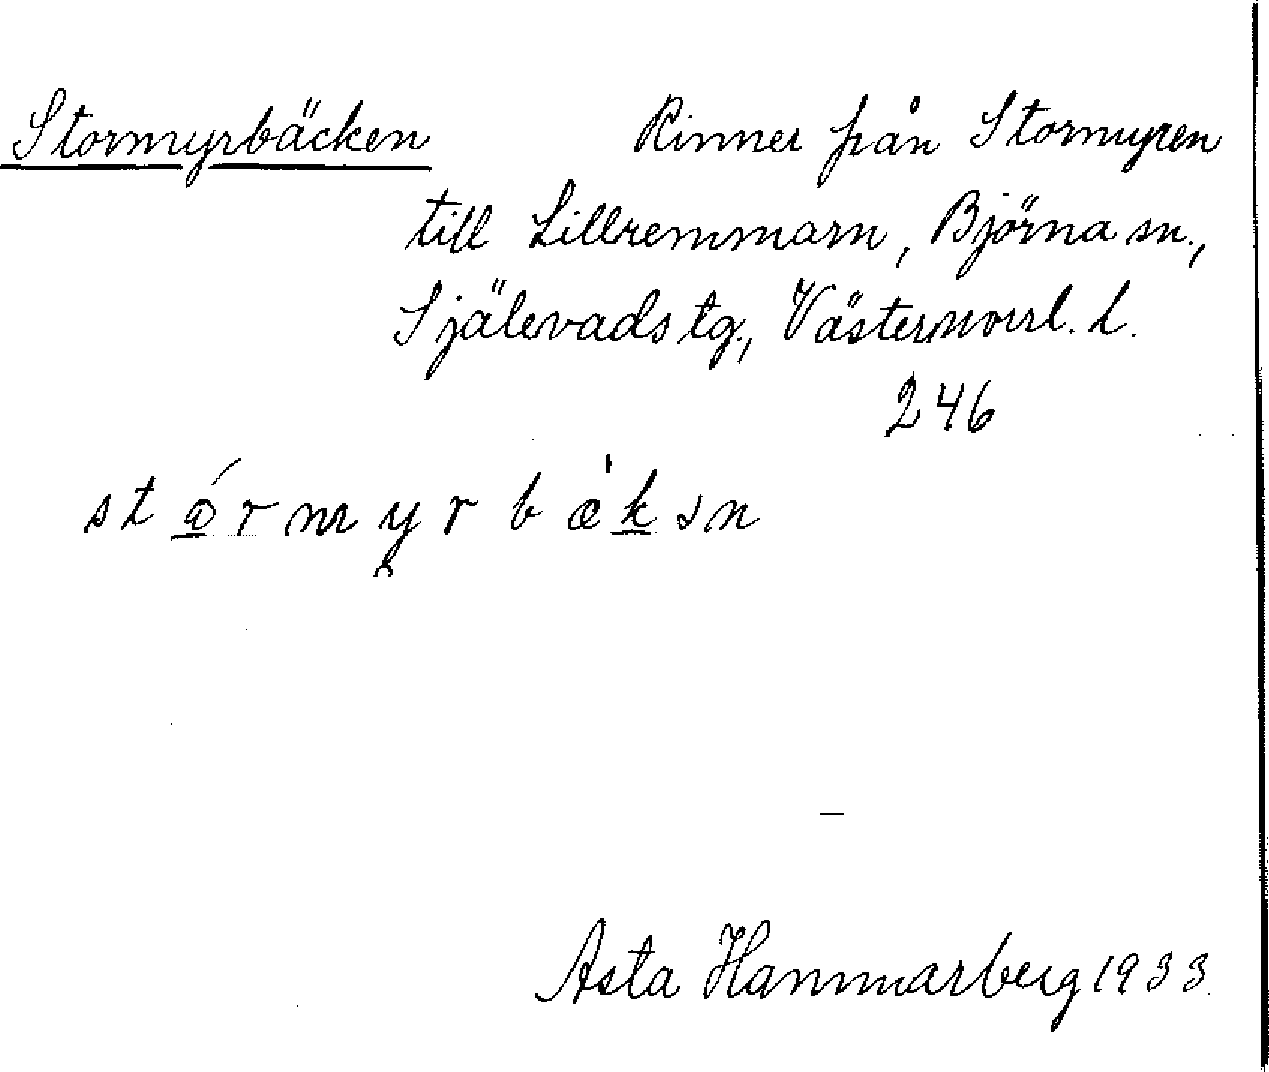 Stormyrbäcken Rinner från Stormyren
till Lillremmarn, Björna sn.,
Själevads tg., Västernorrl. l.
246
Asta Hammarberg 1933.